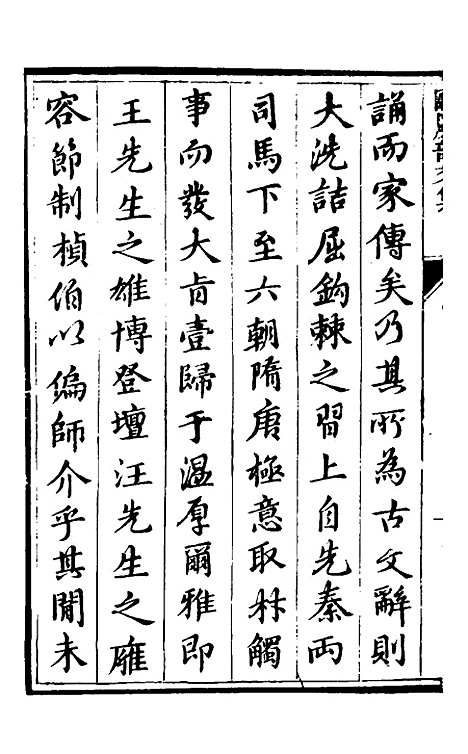 誦而家傳矣乃其所為古文辭則
大洗詰屈鈎棘之習上自先秦兩
司馬下至六朝隋唐極意取材觸
事而發大肯壹歸于溫厚爾雅即
王先生之雄博登壇汪先生之雍
容節制楨伯以偏師介乎其間未